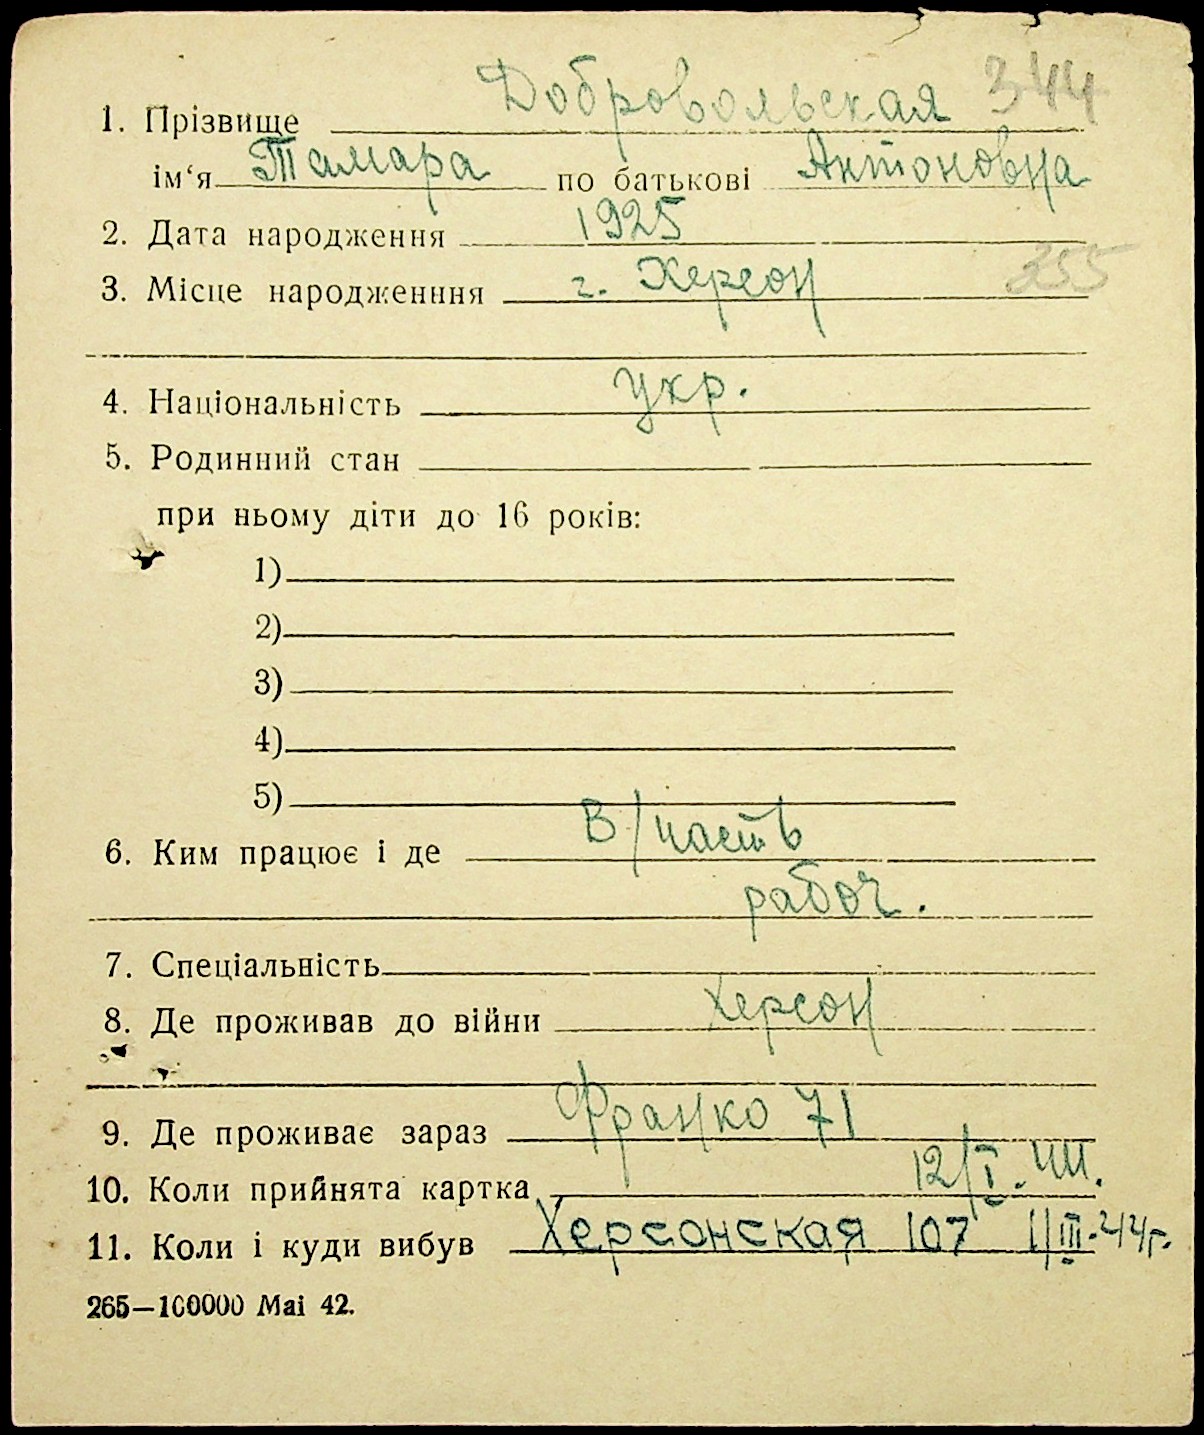 1. Прізвище Добровольская 344
ім‘я Тамара по батькові Антоновна
2. Дата народження 1925
3. Місце народженння г. Херсон 355
4. Національність укр.
5. Родинний стан
при ньому діти до 16 років:
1)
2)
3)
4)
5)
6. Ким працює і де В/часть
рабоч.
7. Спеціальність
8. Де проживав до війни Херсон
9. Де проживає зараз Франко 71
10. Коли прийнята картка 12/I. 44.
11. Коли і куди вибув Херсонская 107 1/III-44г.
265—100000 Mai 42.